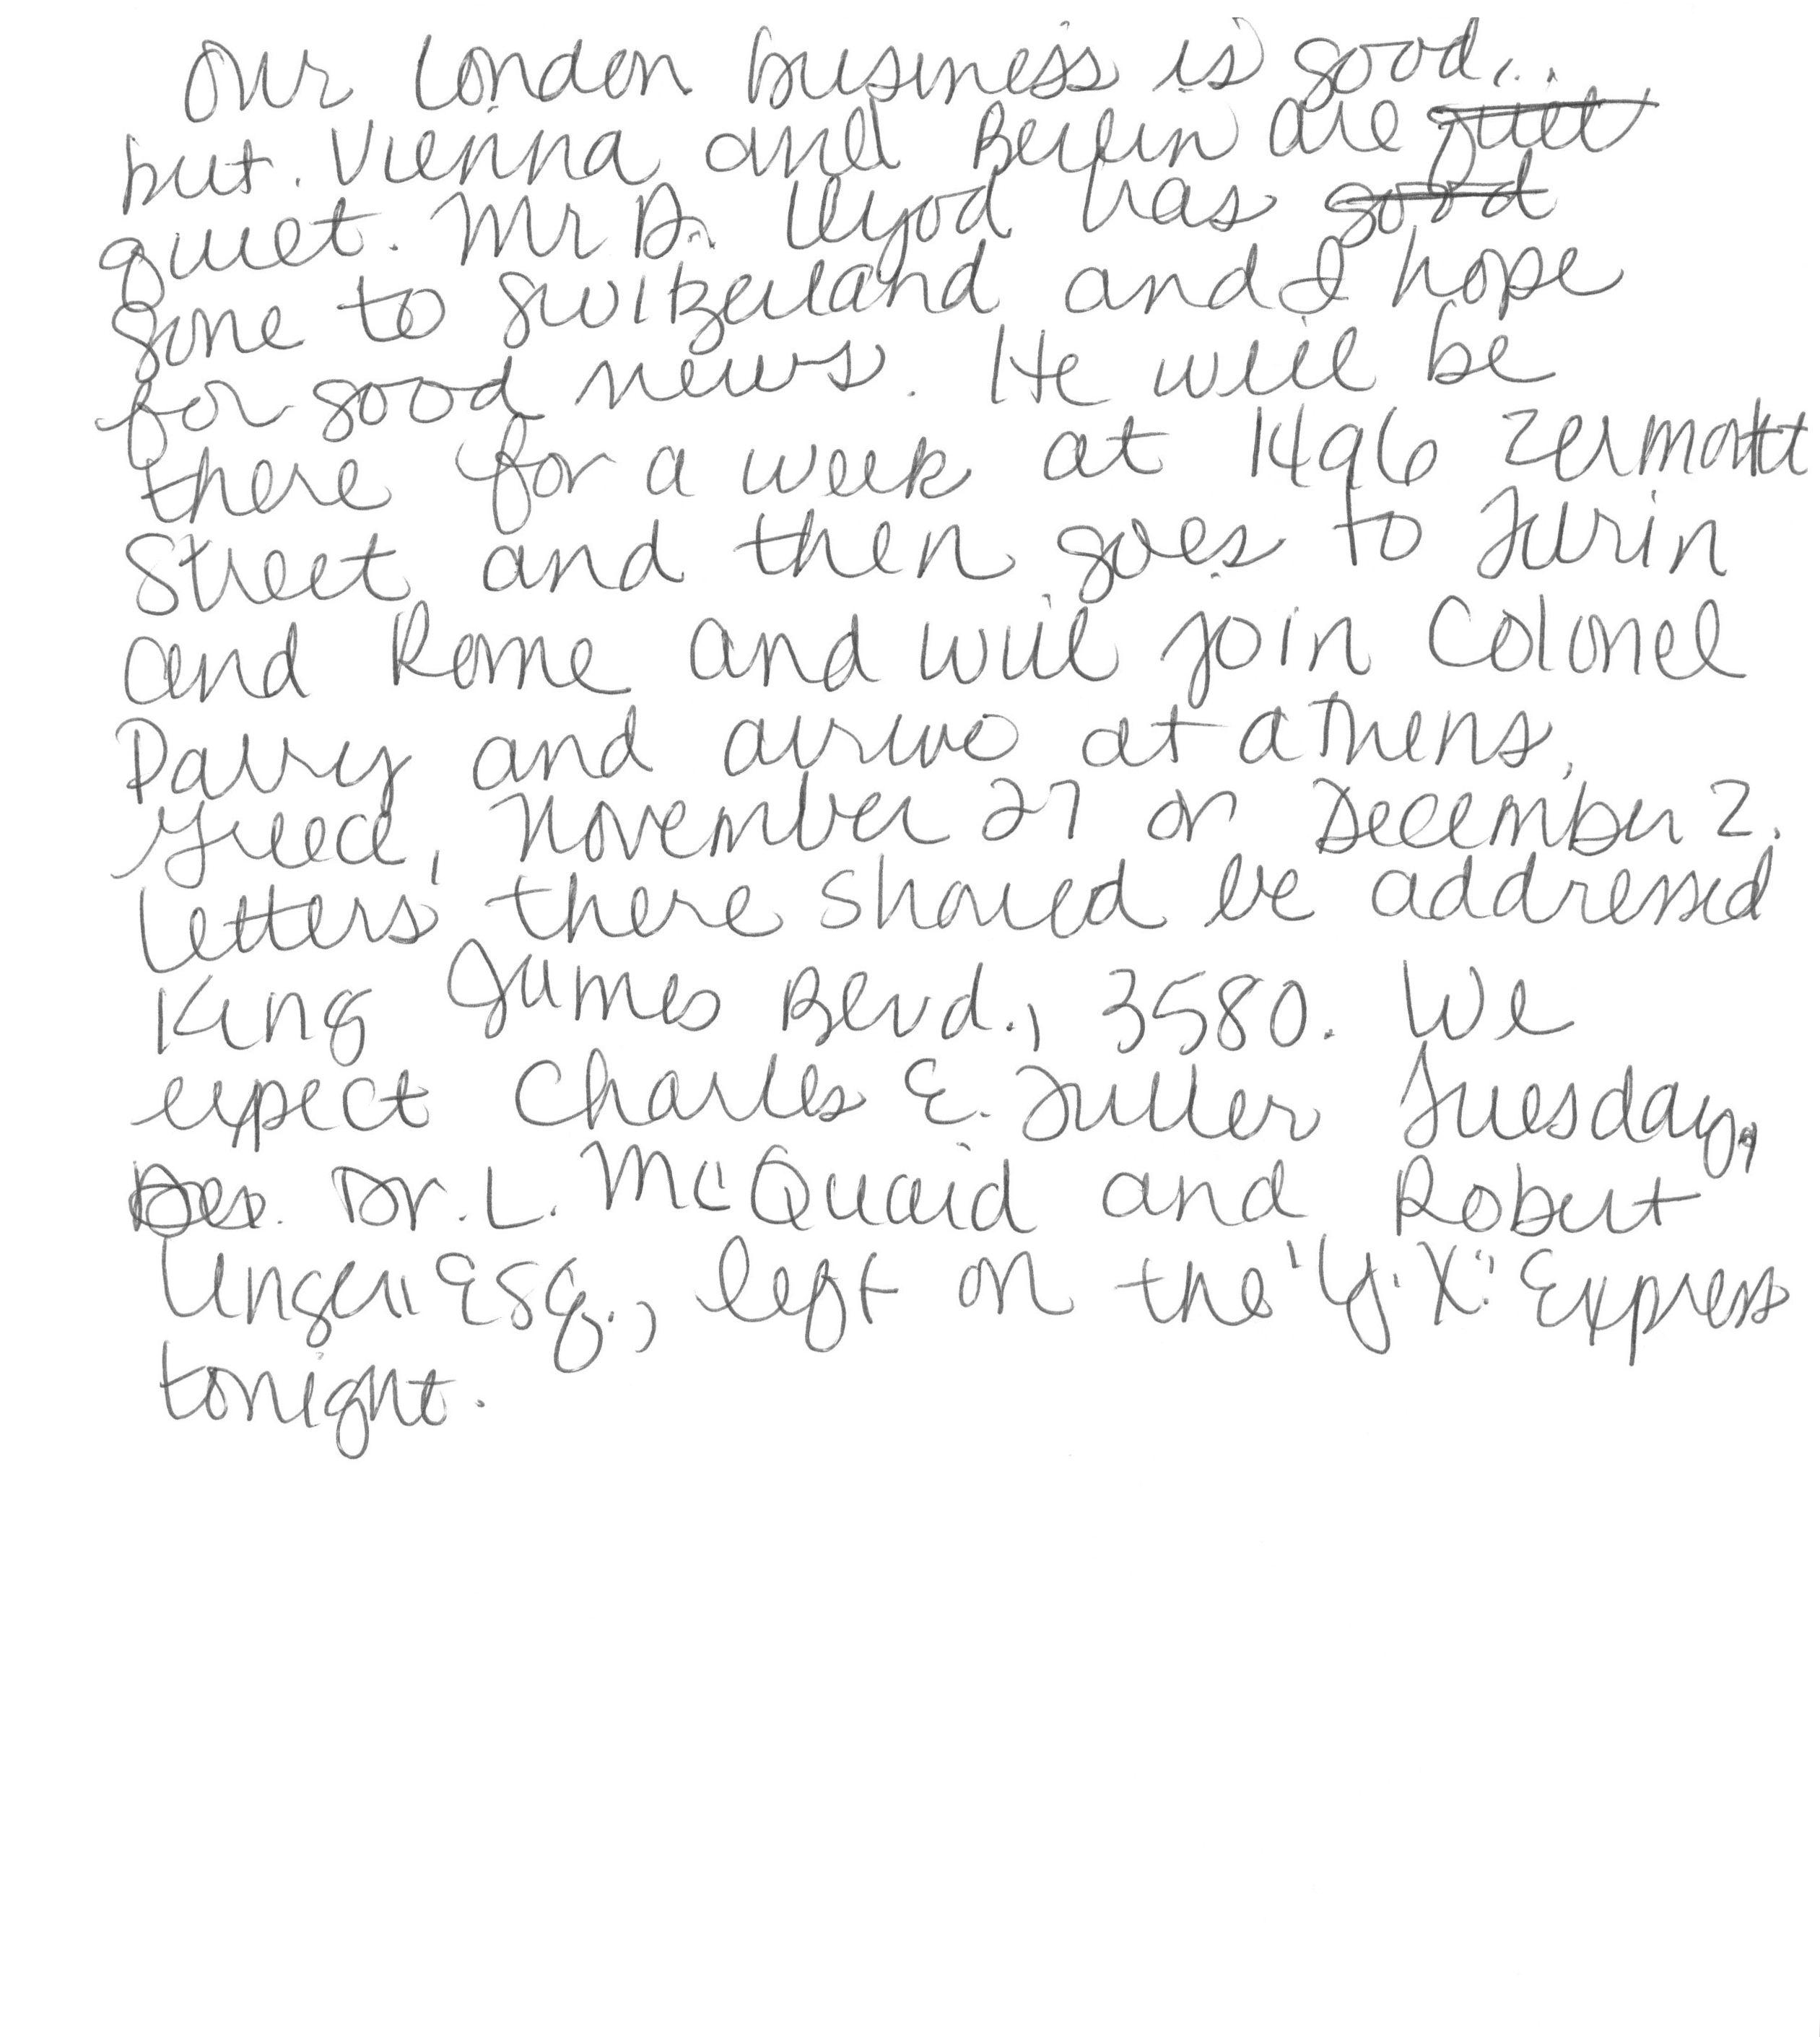 Our London business is good,
but Vienna and Berlin are quiet
quiet. Mr D. Lloyd has good
gone to Switzerland and I hope
for good news. He will be
there for a week at 1496 Zermott
Street and then goes to Turin
and Rome and will join Colonel
Parry and arrive at Athens,
Greece, November 27 or December 2.
Letters there should be addressed
King James Blvd., 3580. We
expect Charles E. Fuller Tuesday.
Dr. L. McQuaid and Robert
Unger, Esq., left on the "Y.X." Express
tonight.